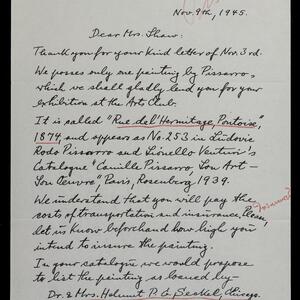 Nov. 9th, 1945.
Dear Mrs. Shaw:
Thank you for your kind letter of Nov. 3rd.
We posses only one painting by Pissarro,
which we shall gladly lend you for your
exhibition at the Art Club.
It is called "Rue de l'Hermitage, Pontoise,"
1874 and appears as No. 253 in Ludovic
Rodo Pissarro and Lionello Venturi's
Catalogue "Camille Pissarro, Son Art –
Son Œuvre", Paris, Rosenberg 1939.
We understand that you will pay the
cost of transportation and insurance, Please,
let us know beforehand how high you
intend to insure the painting.
In your catalogue we would propose
to list the painting as loaned by –
Dr. & Mrs. Helmut P. G. Seckel, Chicago.